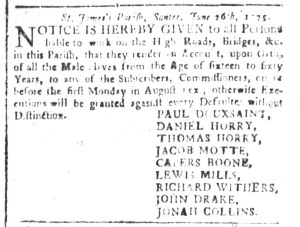 St. James's Parish, Santee, June 26th, 1775.
NOTICE IS HEREBY GIVEN to all Persons
liable to work on the High Roads, Bridges, &c.
in this Parish, that they render an Account, upon Oath,
of all the Male Slaves from the Age of sixteen to sixty
Years, to any of the Subscribers, Commissioners, on or
before the first Monday in August next, otherwise Exe-
cutions will be granted against every Defaulter without
Distinction.
PAUL DOUXSAINT,
DANIEL HORRY,
THOMAS HORRY,
JACOB MOTTE,
CAPERS BOONE,
LEWIS MILLS,
RICHARD WITHERS,
JOHN DRAKE,
JONAH COLLINS.